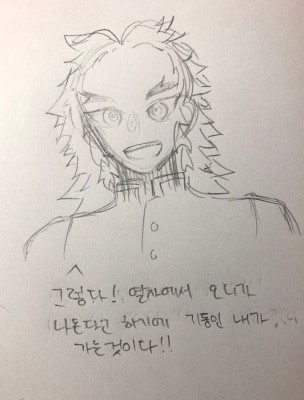 그렇다! 열차에서 오니가
나온다고 하기에 기둥인 내가
가는것이다!!